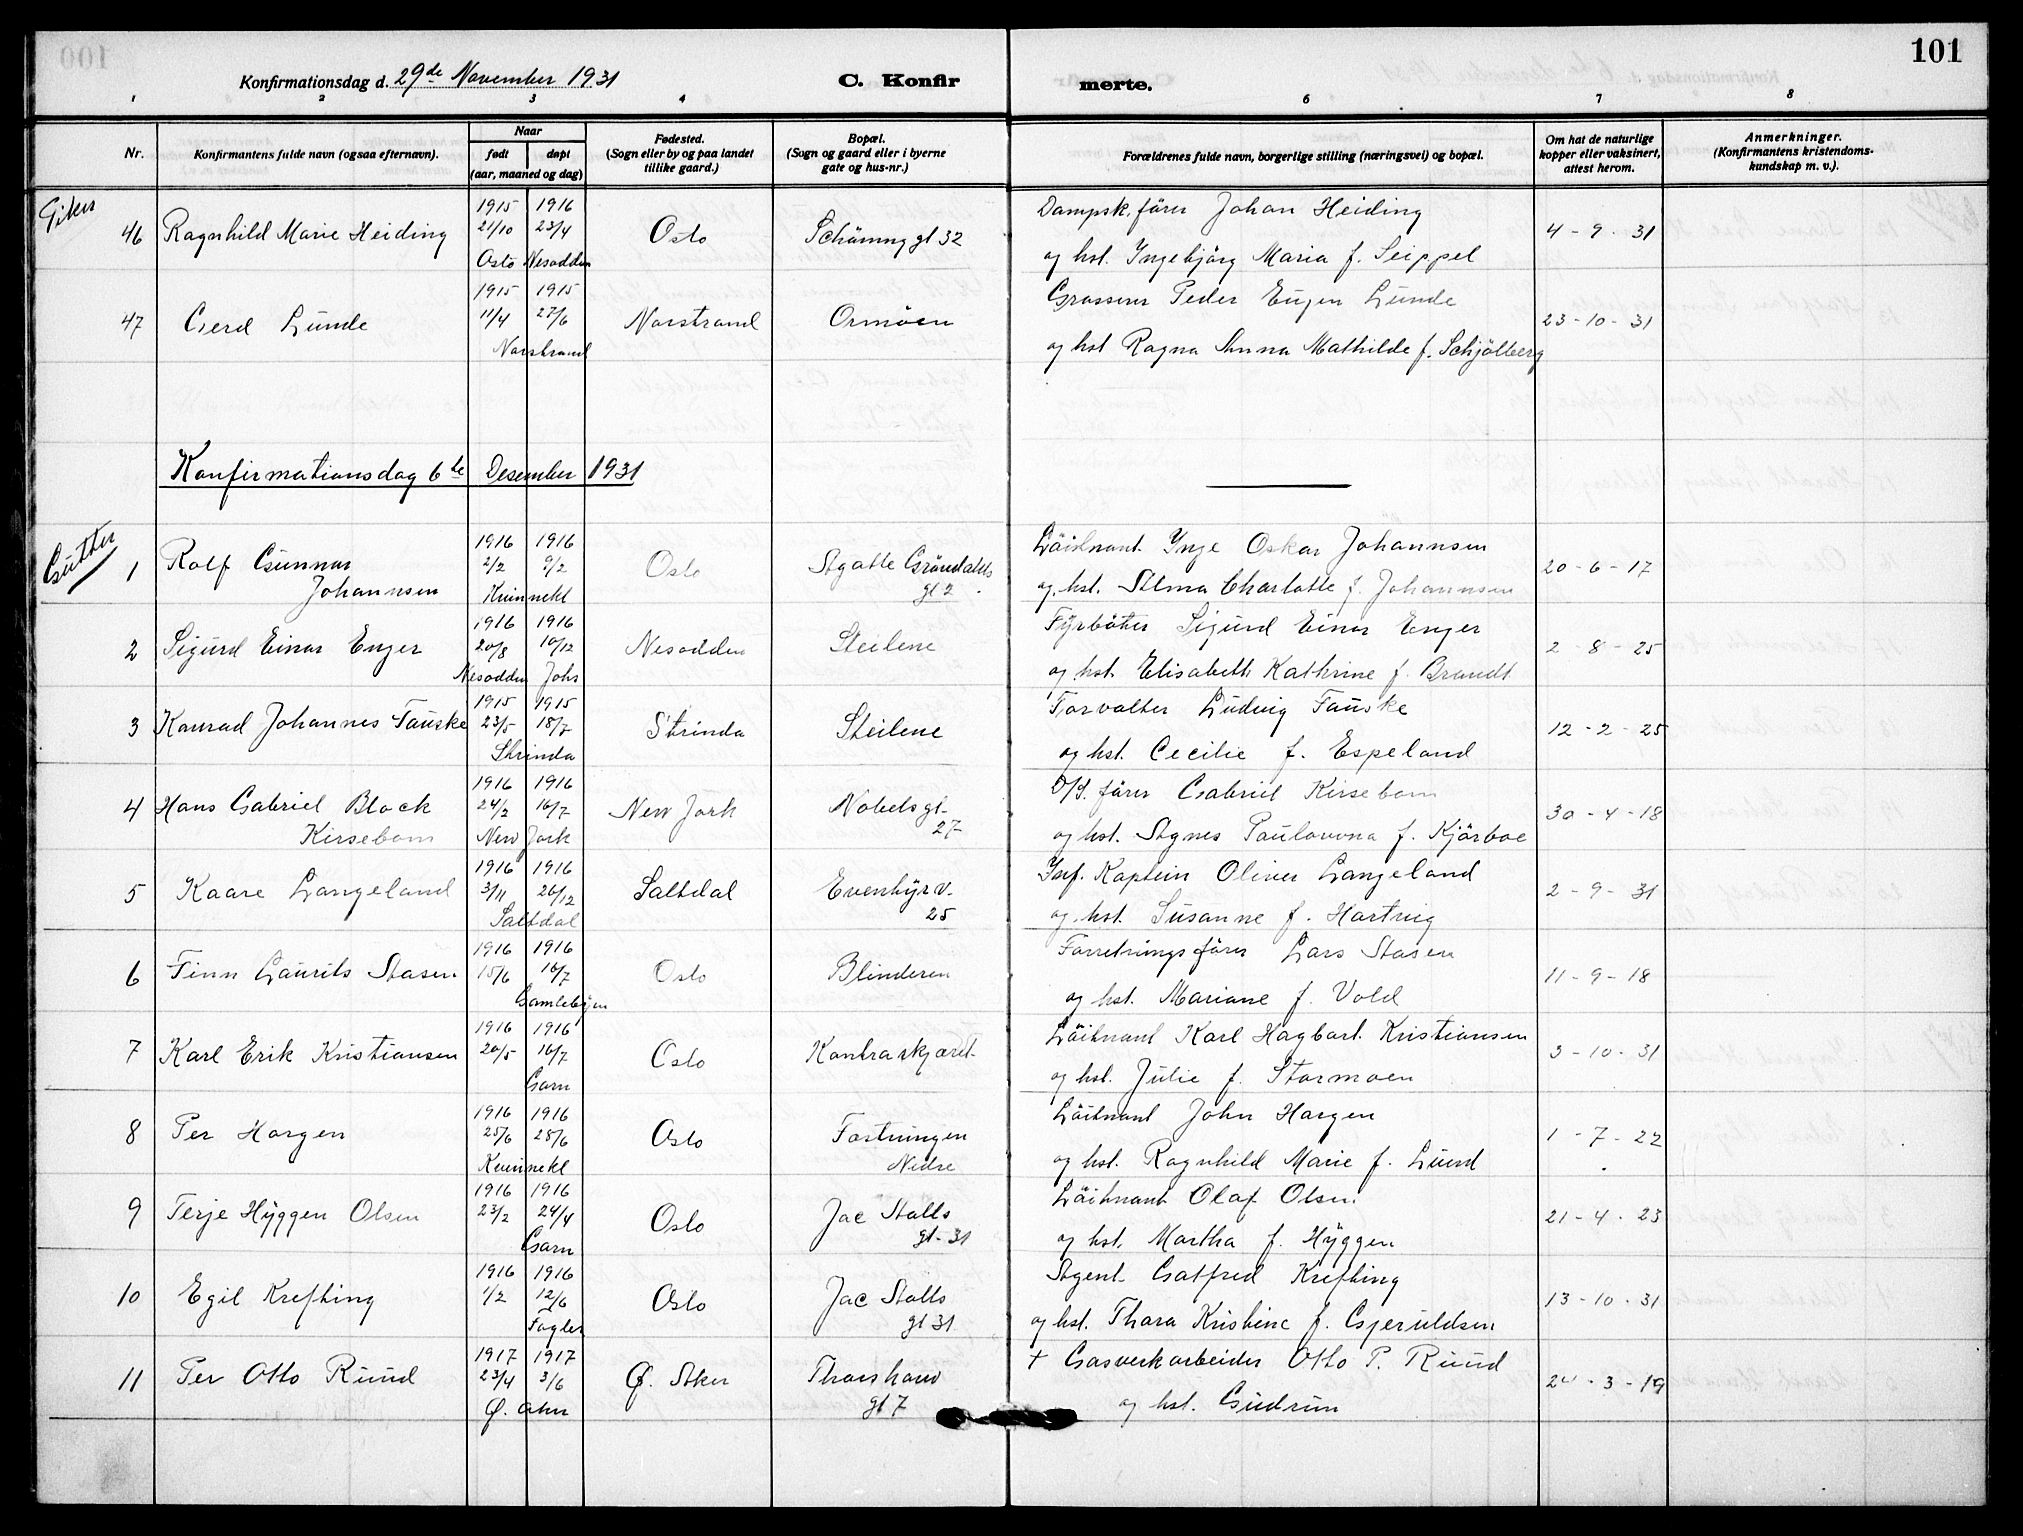 101
Konfirmationsdag d. 29de November 1931 C. Konfir merte.
1 2 3 4 6 7 8
Nr. Konfirmantens fulde navn (ogsaa efternavn). Naar født døpt (aar, maaned og dag) Fødested. (Sogn eller by og paa landet tillike gaard.) Bopæl. (Sogn og gaard eller i byerne gate og hus-nr.) Forældrenes fulde navn, borgerlige stilling (næringsvei) og bopæl. Om hat de naturlige kopper eller vaksinert, attest herom. Anmerkninger. (Konfirmantens kristendoms-kundskap m. v.).
Piker
1915 1916 Dampsk. fører Johan Heiding
46 Ragnhild Marie Heiding 21/10 23/4 Oslo Schönning gt 32 4 - 9 - 31
Oslo Nesodden og hst. Ingebjörg Maria f. Seippel
1915 1915 Grosserer Peder Eugen Lunde
47 Gerd Lunde 11/4 27/6 Norstrand Ormöen 23 - 10 - 31
Norstrand og hst Ragna Anna Mathilde f. Schjölberg
Konfirmationsdag 6te Desember 1931
Gutter
1916 1916 Löitnant Inge Oskar Johannsen
1 Rolf Gunnar 2/2 9/2 Oslo Agatle Gröndahls 20 - 6 - 17
Johannsen Kvinnekl gt 2 og hst. Alma Charlotte f. Johannsen
1916 1916 Fyrböter Sigurd Einar Enger
2 Sigurd Einar Enger 20/8 10/12 Nesodden Steilene 2 - 8 - 25
Nesodden Johs og hst. Elisabeth Kathrine f. Brandt
1915 1915 Forvalter Ludvig Fauske
3 Konrad Johannes Fauske 23/5 18/7 Strinda Steilene 12 - 2 - 25
Strinda og hst. Cecilie f. Espeland
1916 1916 D/S. förer Gabriel Kirsebom
4 Hans Gabriel Block 24/2 16/7 New Jork Nobelsgt. 30 - 4 - 18
Kirsebom New Jork 27 og hst. Agnes Paulowna f. Kjörboe
1916 1916 Inf. Kaptein Oliver Langeland
5 Kaare Langeland 3/11 26/12 Saltdal Evenbyrv. 2 - 9 - 31
Saltdal 25 og hst. Susanne f. Hartvig
1916 1916 Forretningsförer Lars Aasen
6 Finn Laurits Aasen 15/6 16/7 Oslo Blinderen 11 - 9 - 18
Gamlebyen og hst. Mariane f. Vold
1916 1916 Löitnant Karl Hagbart Kristiansen
7 Karl Erik Kristiansen 20/5 16/7 Oslo Kontraskjæret 3 - 10 - 31
Garn og hst. Julie f. Stormoen
1916 1916 Löitnant John Horgen
8 Per Horgen 25/6 28/6 Oslo Festningen 1 - 7 - 22
Kvinnekl Nedre og hst. Ragnhild Marie f. Lund
1916 1916 Löitnant Olaf Olsen
9 Terje Hyggen Olsen 23/2 24/4 Oslo Jac Aalls 21 - 4 - 23
Garn gt. 31 og hst. Martha f. Hyggen
1916 1916 Agent Gotfred Krefting
10 Egil Krefting 1/2 12/6 Oslo Jac Aalls 13 - 10 - 31
Fagler gt 31 og hst. Thora Kristine f. Gjeruldsen
1917 1917 + Gasverkarbeider Otto P. Ruud
11 Per Otto Ruud 23/4 3/6 Ø. Aker Thorshaw 24 - 3 - 19
Ø. Aker gt 7 og hst. Gudrun